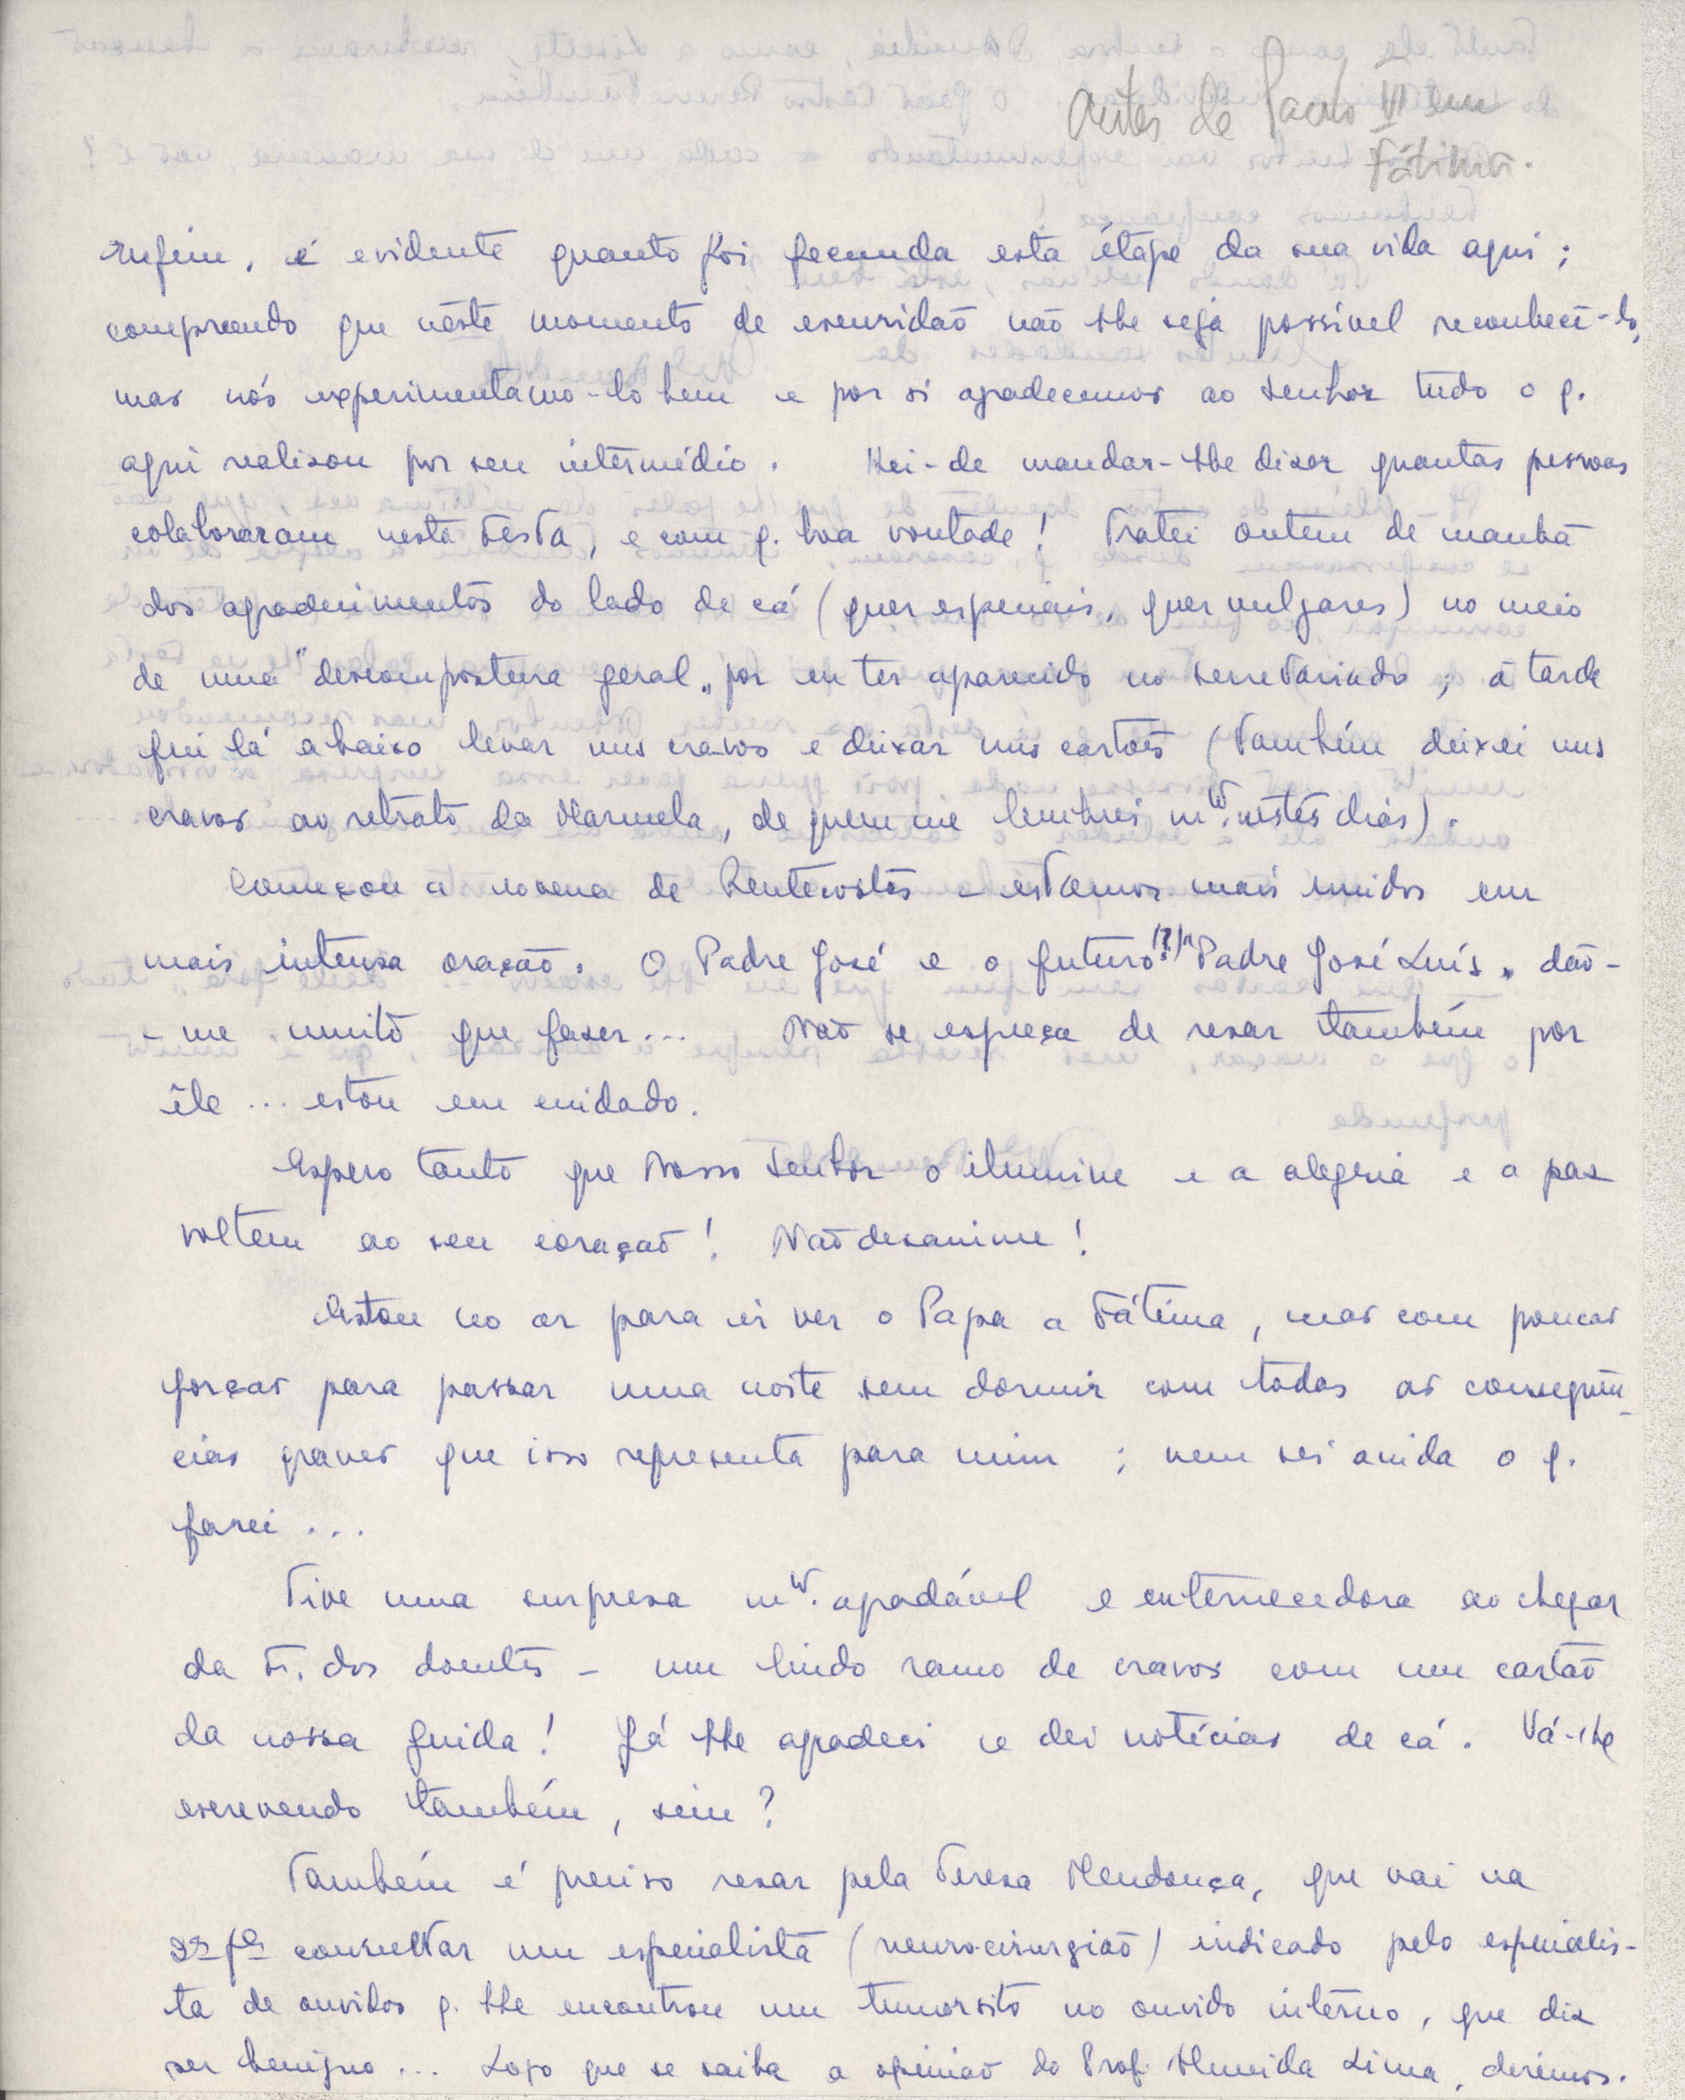 Antes de Paulo VI em
Fátima.
Enfim, é evidente quanto foi fecunda esta étape da sua vida aqui;
compreendo que nêste momento de escuridão não lhe seja possível reconhecê-lo,
mas nós experimentamo-lo bem e por si agradecemos ao Senhor tudo o q.
aqui realisou por seu intermédio. Hei-de mandar-lhe dizer quantas pessoas
colaboraram nesta festa, e com q. boa vontade! Tratei ontem de manhã
dos agradecimentos do lado de cá (quer especiais, quer vulgares) no meio
de uma "descompostura geral" por eu ter aparecido no secretariado; à tarde
fui lá abaixo levar uns cravos e deixar uns cartões (também deixei uns
cravos ao retrato da Manuela, de quem me lembrei mto. nestes dias).
Começou a novena de Pentecostes - estamos mais unidos em
mais intensa oração. O Padre José e o futuro (?) "Padre José Luís" dão-
-me muito que fazer... Não se esqueça de rezar também por
êle ... estou em cuidado.
Espero tanto que Nosso Senhor o ilumine e a alegria e a paz
voltem ao seu coração! Não desanime!
Estou no ar para ir ver o Papa a Fátima, mas com poucas
forças para passar uma noite sem dormir com todas as consequên-
cias graves que isso representa para mim; nem sei ainda o q.
farei ...
Tive uma surpresa mto. agradável e enternecedora ao chegar
da F. dos doentes - um lindo ramo de cravos com um cartão
da nossa Guida! Já lhe agradeci e dei notícias de cá. Vá-lhe
escrevendo também, sim?
Também é preciso rezar pela Teresa Mendonça, que vai na
2ª fª consultar um especialista (neurocirurgião) indicado pelo especialis-
ta de ouvidos q. lhe encontrou um tumorsito no ouvido interno, que diz
ser benigno ... Logo que se saiba a opinião do Prof. Almeida Lima, diremos.